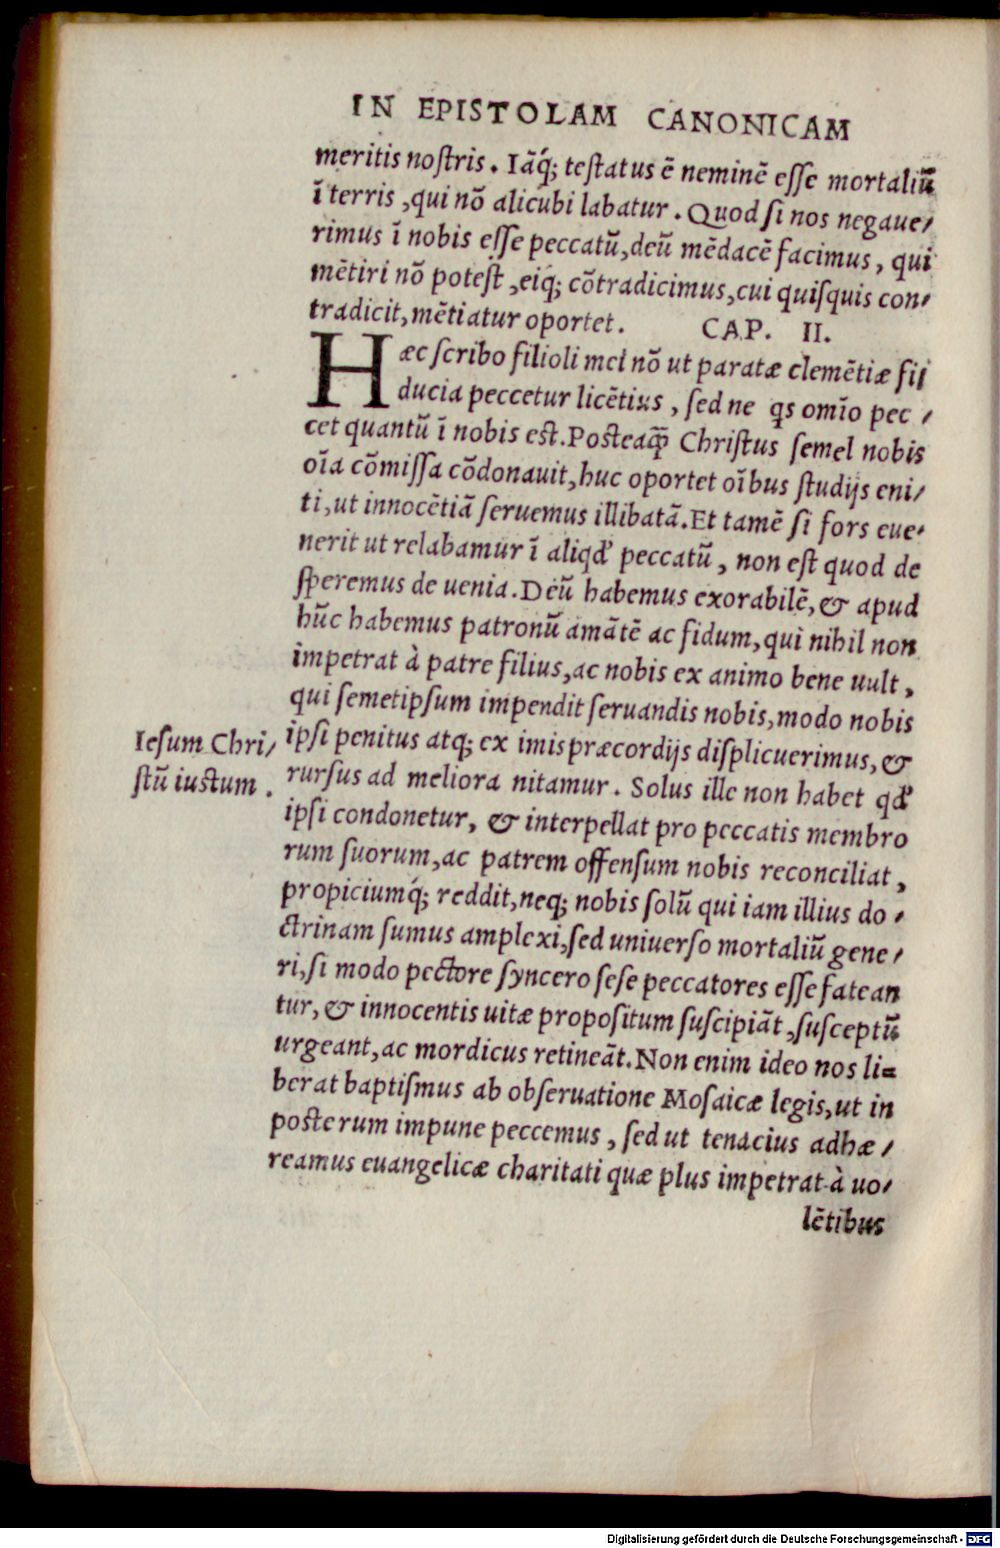 IN EPISTOLAM CANONICAM
meritis noſtris. Iāq́; teſtatus ē neminē eſſe mortaliū
ī terris, qui nō alicubi labatur. Quod ſi nos negaue/
rimus ī nobis eſſe peccatū, deū mēdacē facimus, qui
mētiri nō poteſt, eiq́; cōtradicimus, cui quiſquis con/
tradicit, mētiatur oportet. CAP. II.
Hæc ſcribo filioli mei nō ut paratæ clemētiæ fi/
ducia peccetur licētius, ſed ne qs omīo pec/
cet quantū ī nobis eſt. Poſteaq̄ Chriſtus ſemel nobis
oīa cōmiſſa cōdonauit, huc oportet oībus ſtudijs eni/
ti, ut innocētiā ſeruemus illibatā. Et tamē ſi fors eue/
nerit ut relabamur ī aliqd' peccatū, non eſt quod de
ſperemus de uenia. Deū habemus exorabilē, & apud
hūc habemus patronū amātē ac fidum, qui nihil non
impetrat à patre filius, ac nobis ex animo bene uult,
qui ſemetipſum impendit ſeruandis nobis, modo nobis
Ieſum Chri/
ſtū iuſtum.
ipſi penitus atq; ex imis præcordijs diſplicuerimus, &
rurſus ad meliora nitamur. Solus ille non habet qd'
ipſi condonetur, & interpellat pro peccatis membro
rum ſuorum, ac patrem offenſum nobis reconciliat,
propiciumq́; reddit, neq; nobis ſolū qui iam illius do/
ctrinam ſumus amplexi, ſed uniuerſo mortaliū gene/
ri, ſi modo pectore ſyncero ſeſe peccatores eſſe fatean
tur, & innocentis uitæ propoſitum ſuſcipiāt, ſuſceptū
urgeant, ac mordicus retineāt. Non enim ideo nos li=
berat baptiſmus ab obſeruatione Moſaicæ legis, ut in
poſterum impune peccemus, ſed ut tenacius adhæ/
reamus euangelicæ charitati quæ plus impetrat à uo/
lētibus
Digitalisierung gefördert durch die Deutsche Forschungsgemeinschaft - DFG